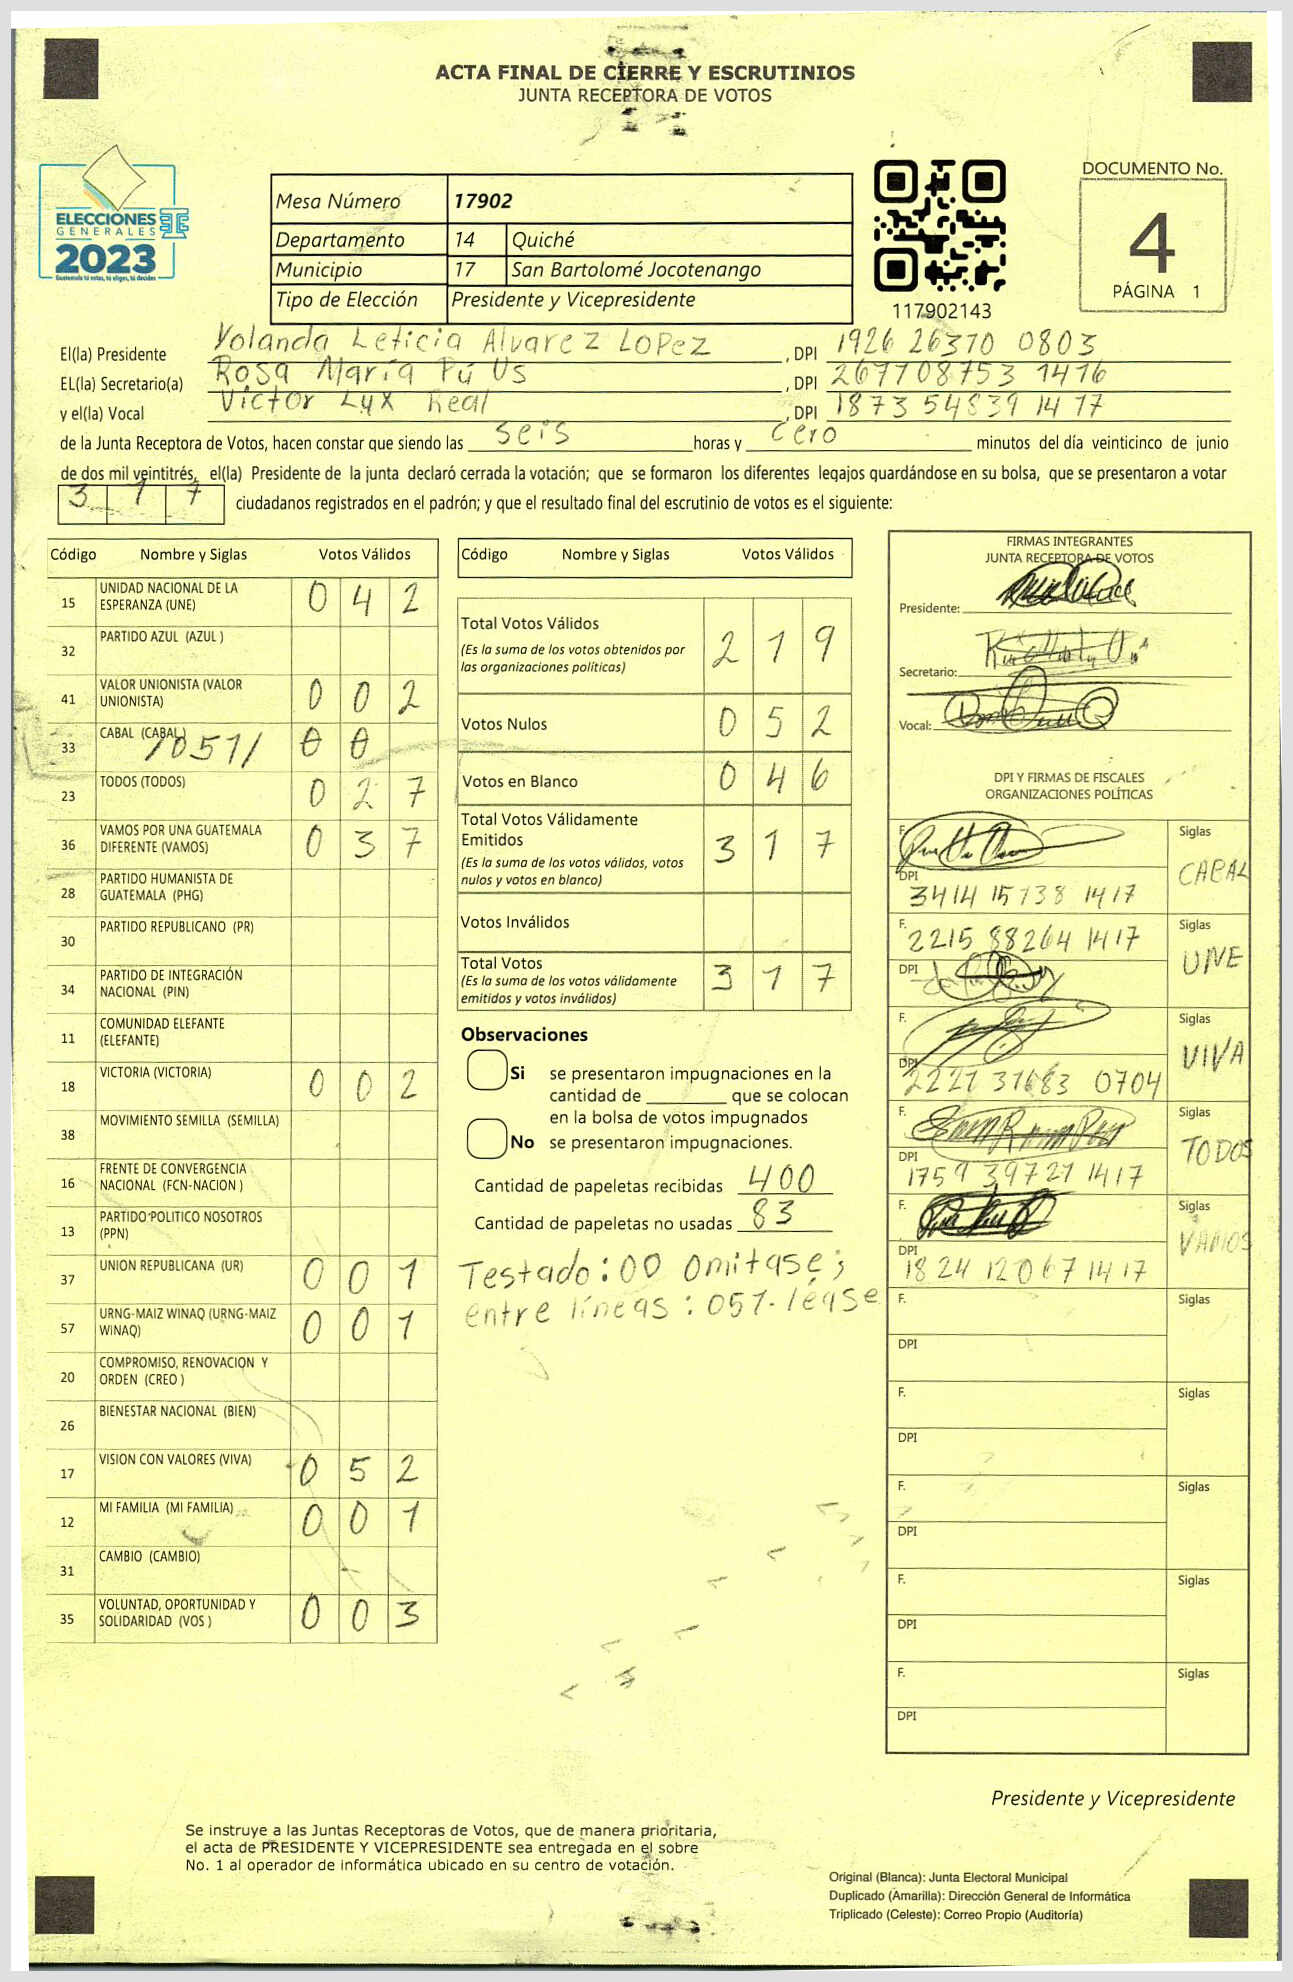 ACTA FINAL DE CIERRE Y ESCRUTINIOS
JUNTA RECEPTORA DE VOTOS
ELECCIONES
GENERALES
2023
Guatemala tú votas, tú eliges, tú decides
Mesa Número 17902
Departamento 14 Quiché
Municipio 17 San Bartolomé Jocotenango
Tipo de Elección Presidente y Vicepresidente
117902143
DOCUMENTO No.
4
PÁGINA 1
El(la) Presidente Yolanda Leticia Alvarez LOPez, DPI 1926 26370 0803
EL(la) Secretario(a) Rosa María Pú Us, DPI 267708753 1416
y el(la) Vocal Victor Lux Real, DPI 1873 54839 1417
de la Junta Receptora de Votos, hacen constar que siendo las seis horas y cero minutos del día veinticinco de junio
de dos mil veintitrés, el(la) Presidente de la junta declaró cerrada la votación; que se formaron los diferentes legajos quardándose en su bolsa, que se presentaron a votar
317 ciudadanos registrados en el padrón; y que el resultado final del escrutinio de votos es el siguiente:
Código Nombre y Siglas Votos Válidos
15 UNIDAD NACIONAL DE LA ESPERANZA (UNE) 0 4 2
32 PARTIDO AZUL (AZUL )
41 VALOR UNIONISTA (VALOR UNIONISTA) 0 0 2
33 CABAL (CABAL) /051/ 0 0
23 TODOS (TODOS) 0 2 7
36 VAMOS POR UNA GUATEMALA DIFERENTE (VAMOS) 0 3 7
28 PARTIDO HUMANISTA DE GUATEMALA (PHG)
30 PARTIDO REPUBLICANO (PR)
34 PARTIDO DE INTEGRACIÓN NACIONAL (PIN)
11 COMUNIDAD ELEFANTE (ELEFANTE)
18 VICTORIA (VICTORIA) 0 0 2
38 MOVIMIENTO SEMILLA (SEMILLA)
16 FRENTE DE CONVERGENCIA NACIONAL (FCN-NACION )
13 PARTIDO POLITICO NOSOTROS (PPN)
37 UNION REPUBLICANA (UR) 0 0 1
57 URNG-MAIZ WINAQ (URNG-MAIZ WINAQ) 0 0 1
20 COMPROMISO, RENOVACION Y ORDEN (CREO )
26 BIENESTAR NACIONAL (BIEN)
17 VISION CON VALORES (VIVA) 0 5 2
12 MI FAMILIA (MI FAMILIA) 0 0 1
31 CAMBIO (CAMBIO)
35 VOLUNTAD, OPORTUNIDAD Y SOLIDARIDAD (VOS ) 0 0 3
Código Nombre y Siglas Votos Válidos
Total Votos Válidos 2 1 9
(Es la suma de los votos obtenidos por
las organizaciones políticas)
Votos Nulos 0 5 2
Votos en Blanco 0 4 6
Total Votos Válidamente
Emitidos 3 1 7
(Es la suma de los votos válidos, votos
nulos y votos en blanco)
Votos Inválidos
Total Votos 3 1 7
(Es la suma de los votos válidamente
emitidos y votos inválidos)
Observaciones
Si se presentaron impugnaciones en la
cantidad de ________ que se colocan
en la bolsa de votos impugnados
No se presentaron impugnaciones.
Cantidad de papeletas recibidas 400
Cantidad de papeletas no usadas 83
Testado: 00 omitase;
entre líneas: 051. léase
FIRMAS INTEGRANTES
JUNTA RECEPTORA DE VOTOS
Presidente:
Secretario:
Vocal:
DPI Y FIRMAS DE FISCALES
ORGANIZACIONES POLÍTICAS
F. Siglas CABAL
DPI 3414 15738 1417
F. 2215 88264 1417 Siglas UNE
DPI
F. Siglas VIVA
DPI 2227 37683 0704
F. Siglas TODOS
DPI 1759 39727 1417
F. Siglas VAMOS
DPI 1824 12067 1417
F. Siglas
DPI
F. Siglas
DPI
F. Siglas
DPI
F. Siglas
DPI
F. Siglas
DPI
Presidente y Vicepresidente
Se instruye a las Juntas Receptoras de Votos, que de manera prioritaria,
el acta de PRESIDENTE Y VICEPRESIDENTE sea entregada en el sobre
No. 1 al operador de informática ubicado en su centro de votación.
Original (Blanca): Junta Electoral Municipal
Duplicado (Amarilla): Dirección General de Informática
Triplicado (Celeste): Correo Propio (Auditoría)